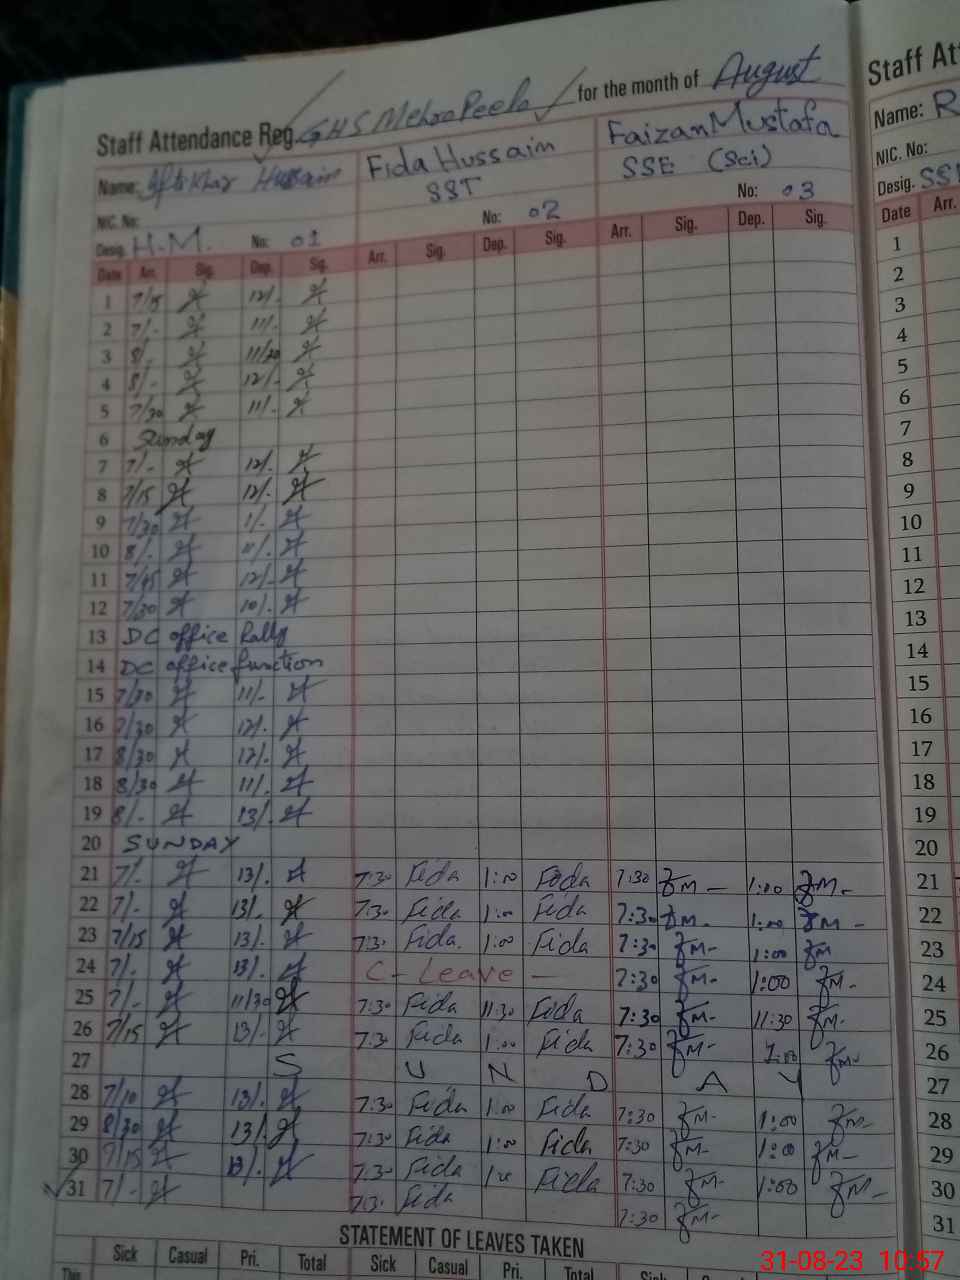 Staff Attendance Reg. GHS Mehro Peelo for the month of August
Name: Iftikhar Hussain Fida Hussain Faizan Mustafa
SST SSE (Sci)
NIC. No:
Desig. H.M. No: 01 No: 02 No: 03
Date Arr. Sig. Dep. Sig. Arr. Sig. Dep. Sig. Arr. Sig. Dep. Sig.
1 7/15 12/.
2 7/- 11/.
3 8/. 11/20
4 8/- 12/.
5 7/30 11/.
6 Sunday
7 7/- 12/.
8 7/15 12/.
9 7/30 1/.
10 8/. 11/.
11 7/45 12/.
12 7/30 10/.
13 DC office Rally
14 DC office function
15 7/30 11/.
16 7/30 12/.
17 8/30 12/.
18 8/30 11/.
19 8/- 13/.
20 SUNDAY
21 7/. 13/. 7:30 Fida 1:00 Fida 7:30 FM- 1:00 FM-
22 7/- 13/. 7:30 Fida 1:00 Fida 7:30 FM- 1:00 FM-
23 7/15 13/. 7:30 Fida. 1:00 Fida 7:30 FM- 1:00 FM
24 7/- 13/. C- Leave - 7:30 FM- 1:00 FM-
25 7/- 11/30 7:30 Fida 11:30 Fida 7:30 FM- 11:30 FM-
26 7/15 13/- 7:30 Fida 1:00 Fida 7:30 FM- 1:00 FM-
27 S U N D A Y
28 7/10 13/. 7:30 Fida 1:00 Fida 7:30 FM- 1:00 FM-
29 8/30 13/. 7:30 Fida 1:00 Fida 7:30 FM- 1:00 FM-
30 7/15 13/. 7:30 Fida 1:00 Fida 7:30 FM- 1:00 FM-
31 7/- 7:30 Fida 7:30 FM-
STATEMENT OF LEAVES TAKEN
Sick Casual Pri. Total Sick Casual Pri. Total Sick
This
Staff Att
Name: R
NIC. No:
Desig. SS
Date Arr.
1
2
3
4
5
6
7
8
9
10
11
12
13
14
15
16
17
18
19
20
21
22
23
24
25
26
27
28
29
30
31
31-08-23 10:57